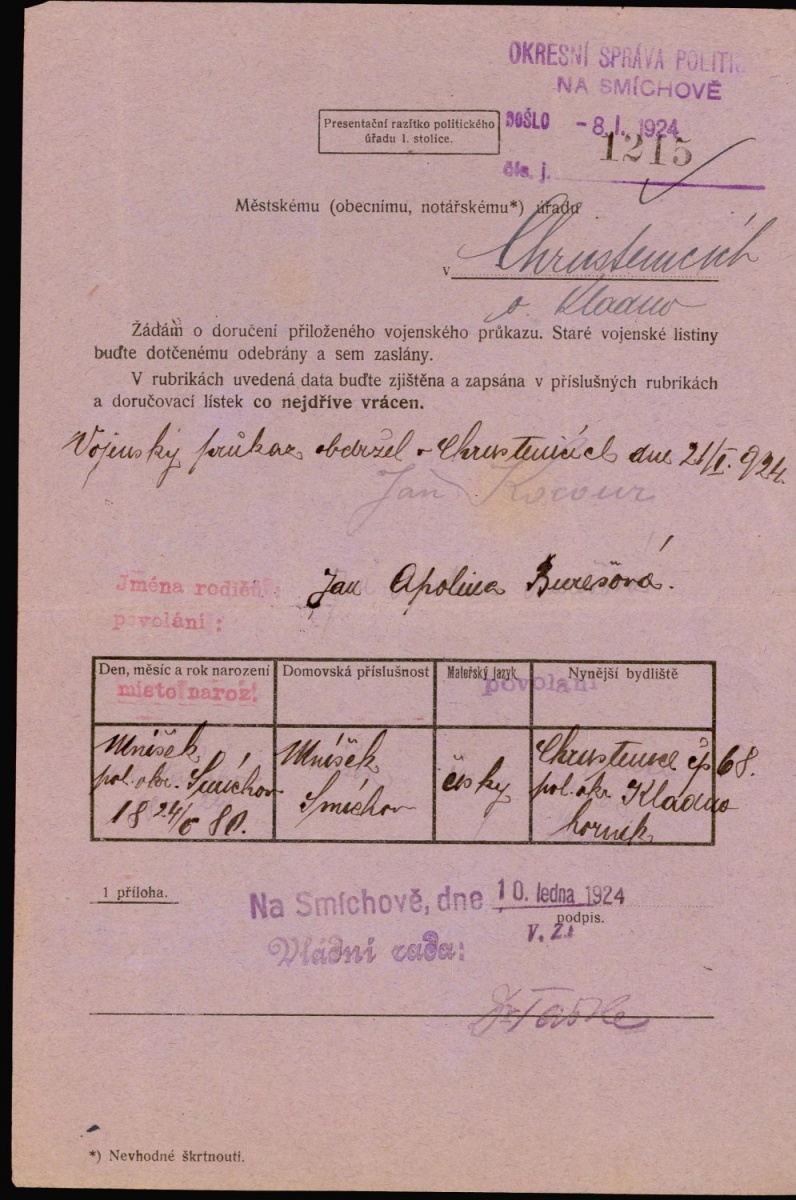 OKRESNÍ SPRÁVA POLITI
NA SMÍCHOVĚ
DOŠLO -8. I. 1924
1215
čís. j.
Presentační razítko politického
úřadu I. stolice.
Městskému (obecnímu, notářskému*) úřadu
v Chrustenicích
o. Kladno
Žádám o doručení přiloženého vojenského průkazu. Staré vojenské listiny
buďte dotčenému odebrány a sem zaslány.
V rubrikách uvedená data buďte zjištěna a zapsána v příslušných rubrikách
a doručovací lístek co nejdříve vrácen.
Vojenský průkaz obdržel v Chrustenicích dne 21/I. 924.
Jan Kocour
Jména rodičů: Jan Apolina Burešová.
povolání:
Den, měsíc a rok narození Domovská příslušnost Mateřský jazyk Nynější bydliště
místo naroz. povolání
Mníšek Mníšek česky Chrustenice čp 68.
pol. okr. Smíchov Smíchov pol. okr. Kladno
18 24/6 80. horník
1 příloha.
Na Smíchově, dne 10. ledna 1924
podpis.
Vládní rada: v. z.
*) Nevhodné škrtnouti.